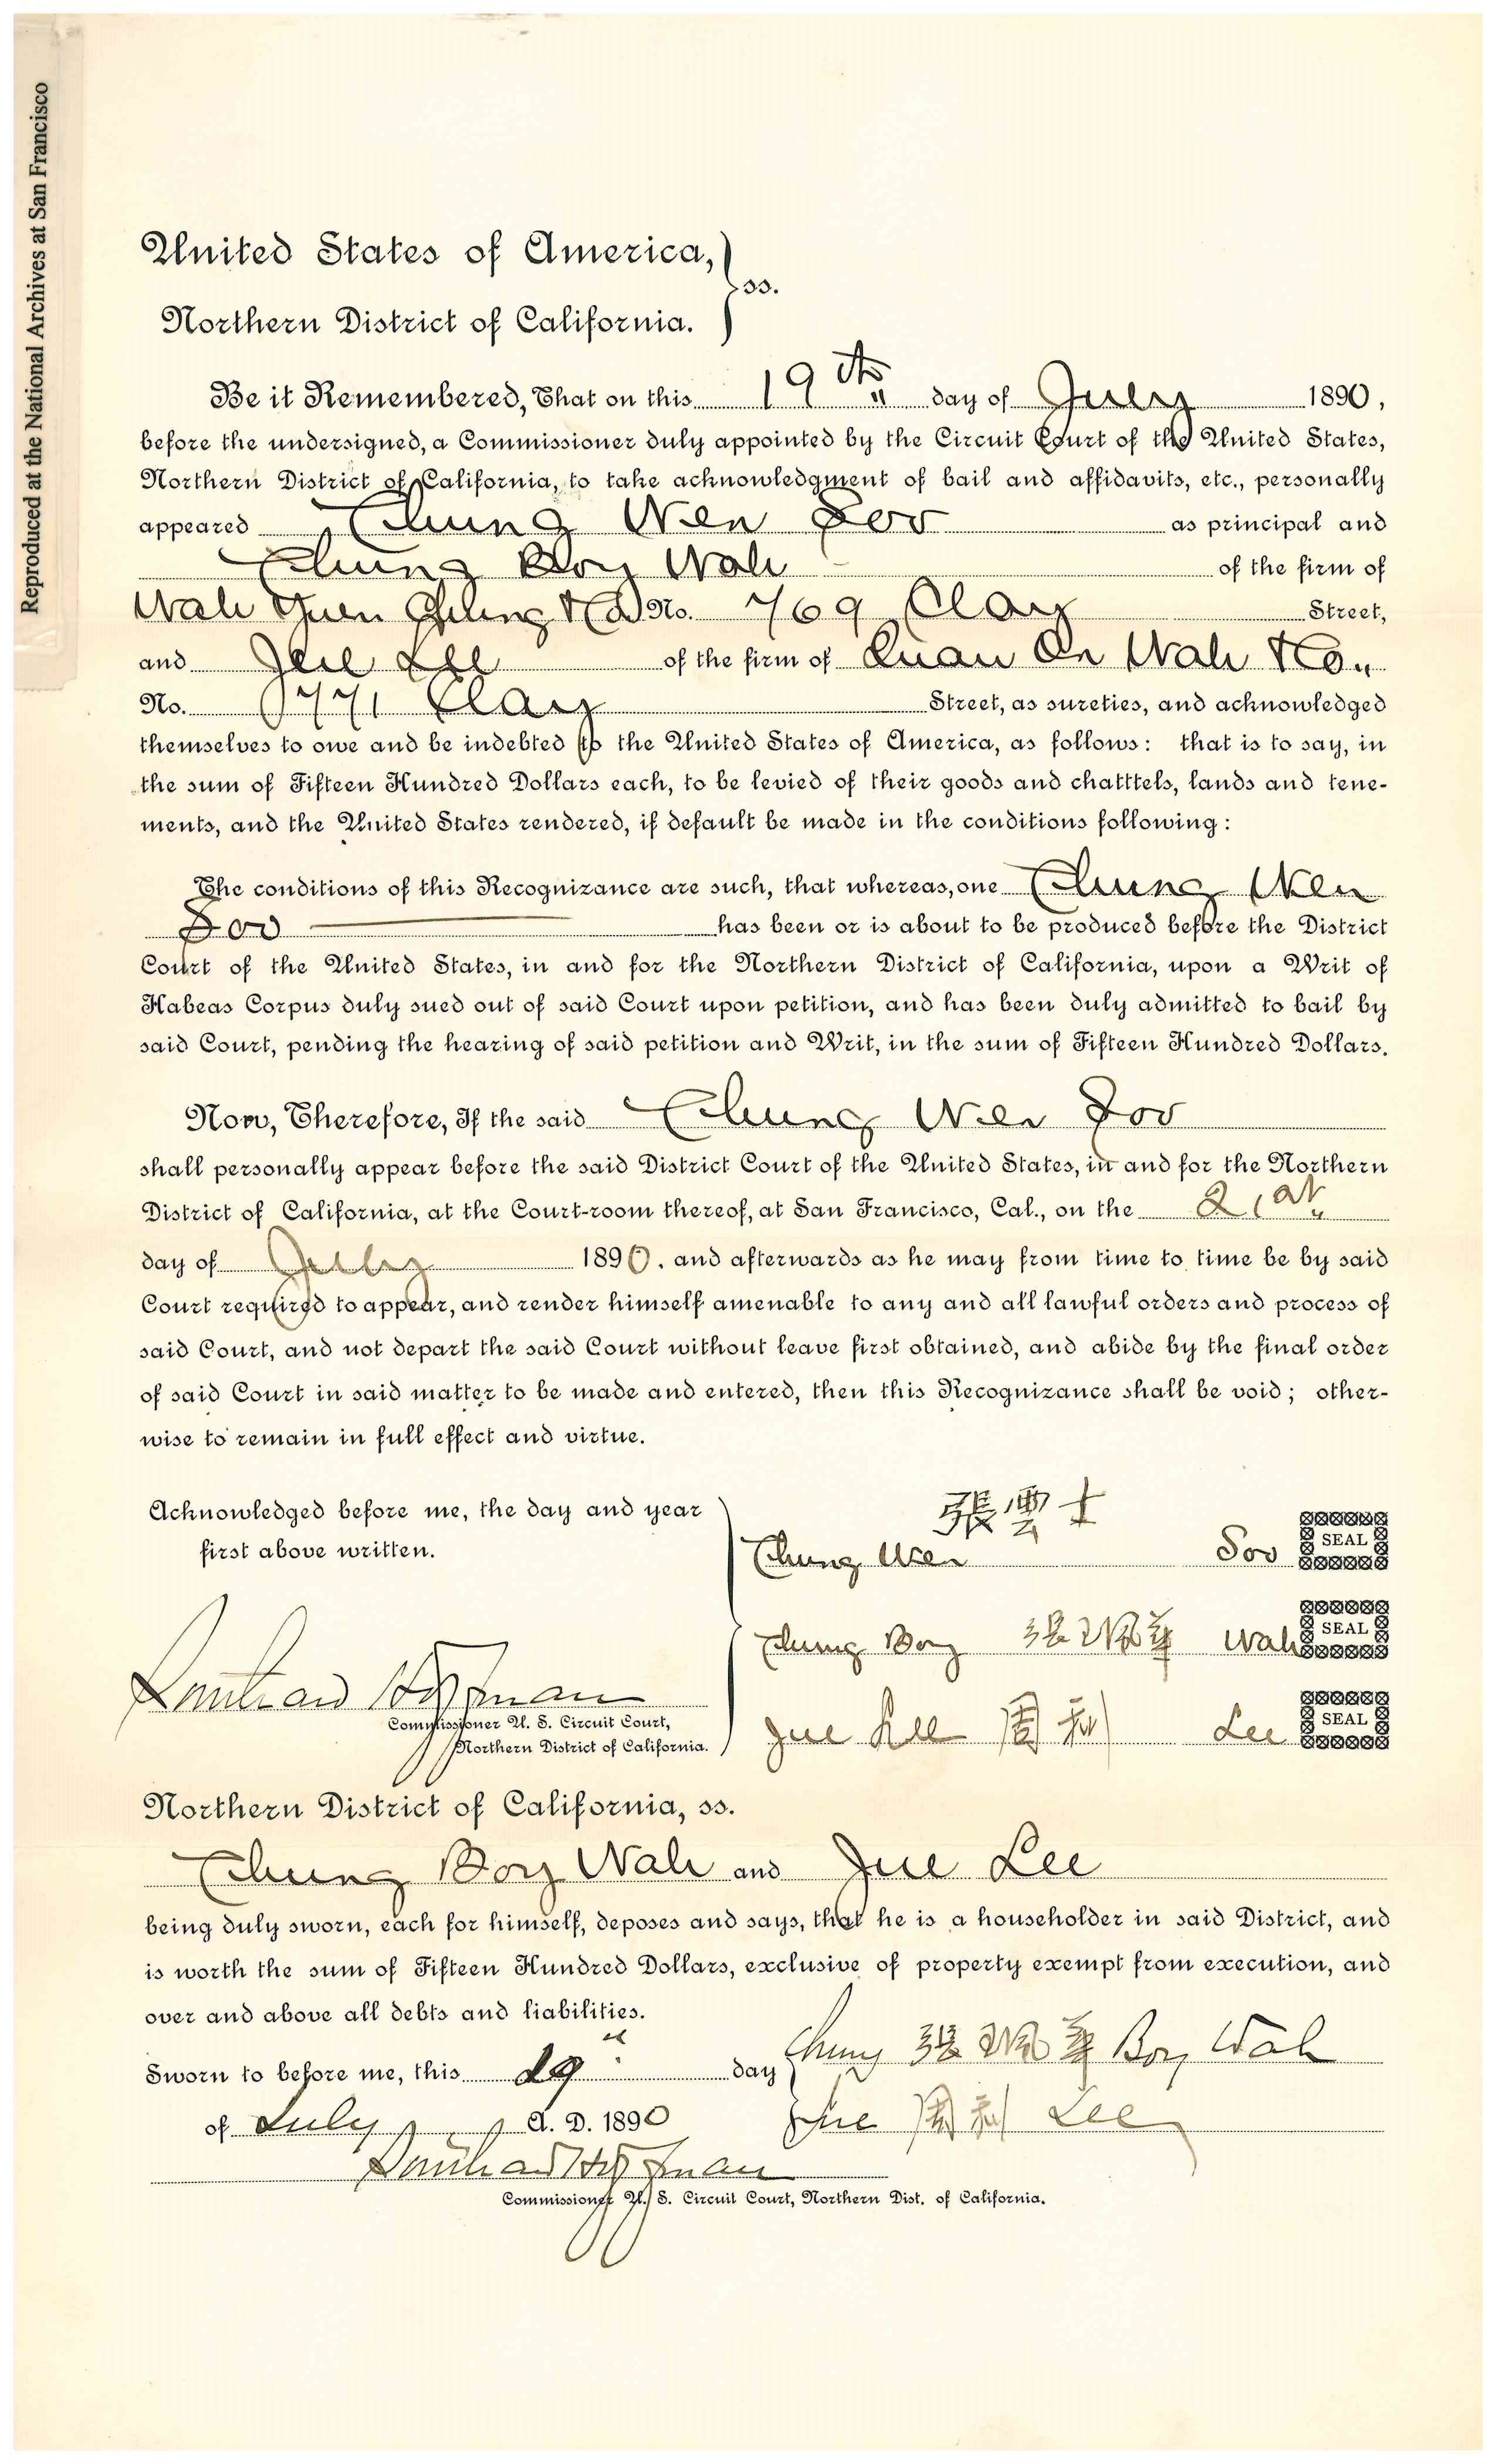 Reproduced at the National Archives at San Francisco
United States of America,
ss.
Northern District of California.
Be it Remembered, That on this 19th day of July 1890,
before the undersigned, a Commissioner duly appointed by the Circuit Court of the United States,
Northern District of California, to take acknowledgment of bail and affidavits, etc., personally
appeared Chung Wen Soo as principal and
Chung Boy Wah of the firm of
Wah Yuen & Co No. 769 Clay Street,
and Jue Lee of the firm of Quan On Wah & Co.,
No. 771 Clay Street, as sureties, and acknowledged
themselves to owe and be indebted to the United States of America, as follows: that is to say, in
the sum of Fifteen Hundred Dollars each, to be levied of their goods and chatttels, lands and tene-
ments, and the United States rendered, if default be made in the conditions following:
The conditions of this Recognizance are such, that whereas, one Chung Wen
Soo has been or is about to be produced before the District
Court of the United States, in and for the Northern District of California, upon a Writ of
Habeas Corpus duly sued out of said Court upon petition, and has been duly admitted to bail by
said Court, pending the hearing of said petition and Writ, in the sum of Fifteen Hundred Dollars.
Now, Therefore, If the said Chung Wen Soo
shall personally appear before the said District Court of the United States, in and for the Northern
District of California, at the Court-room thereof, at San Francisco, Cal., on the 21st
day of July 1890. and afterwards as he may from time to time be by said
Court required to appear, and render himself amenable to any and all lawful orders and process of
said Court, and not depart the said Court without leave first obtained, and abide by the final order
of said Court in said matter to be made and entered, then this Recognizance shall be void; other-
wise to remain in full effect and virtue.
Acknowledged before me, the day and year
first above written.
張雲士
Chung Wen Soo SEAL
Chung Boy 張 華 Wah SEAL
Jue Lee 周利 Lee SEAL
Commissioner U. S. Circuit Court,
Northern District of California.
Northern District of California, ss.
Chung Boy Wah and Jue Lee
being duly sworn, each for himself, deposes and says, that he is a householder in said District, and
is worth the sum of Fifteen Hundred Dollars, exclusive of property exempt from execution, and
over and above all debts and liabilities.
Sworn to before me, this 19 day
Chung 張 華 Boy Wah
of July A. D. 1890
Jue 周利 Lee
Commissioner U. S. Circuit Court, Northern Dist. of California.